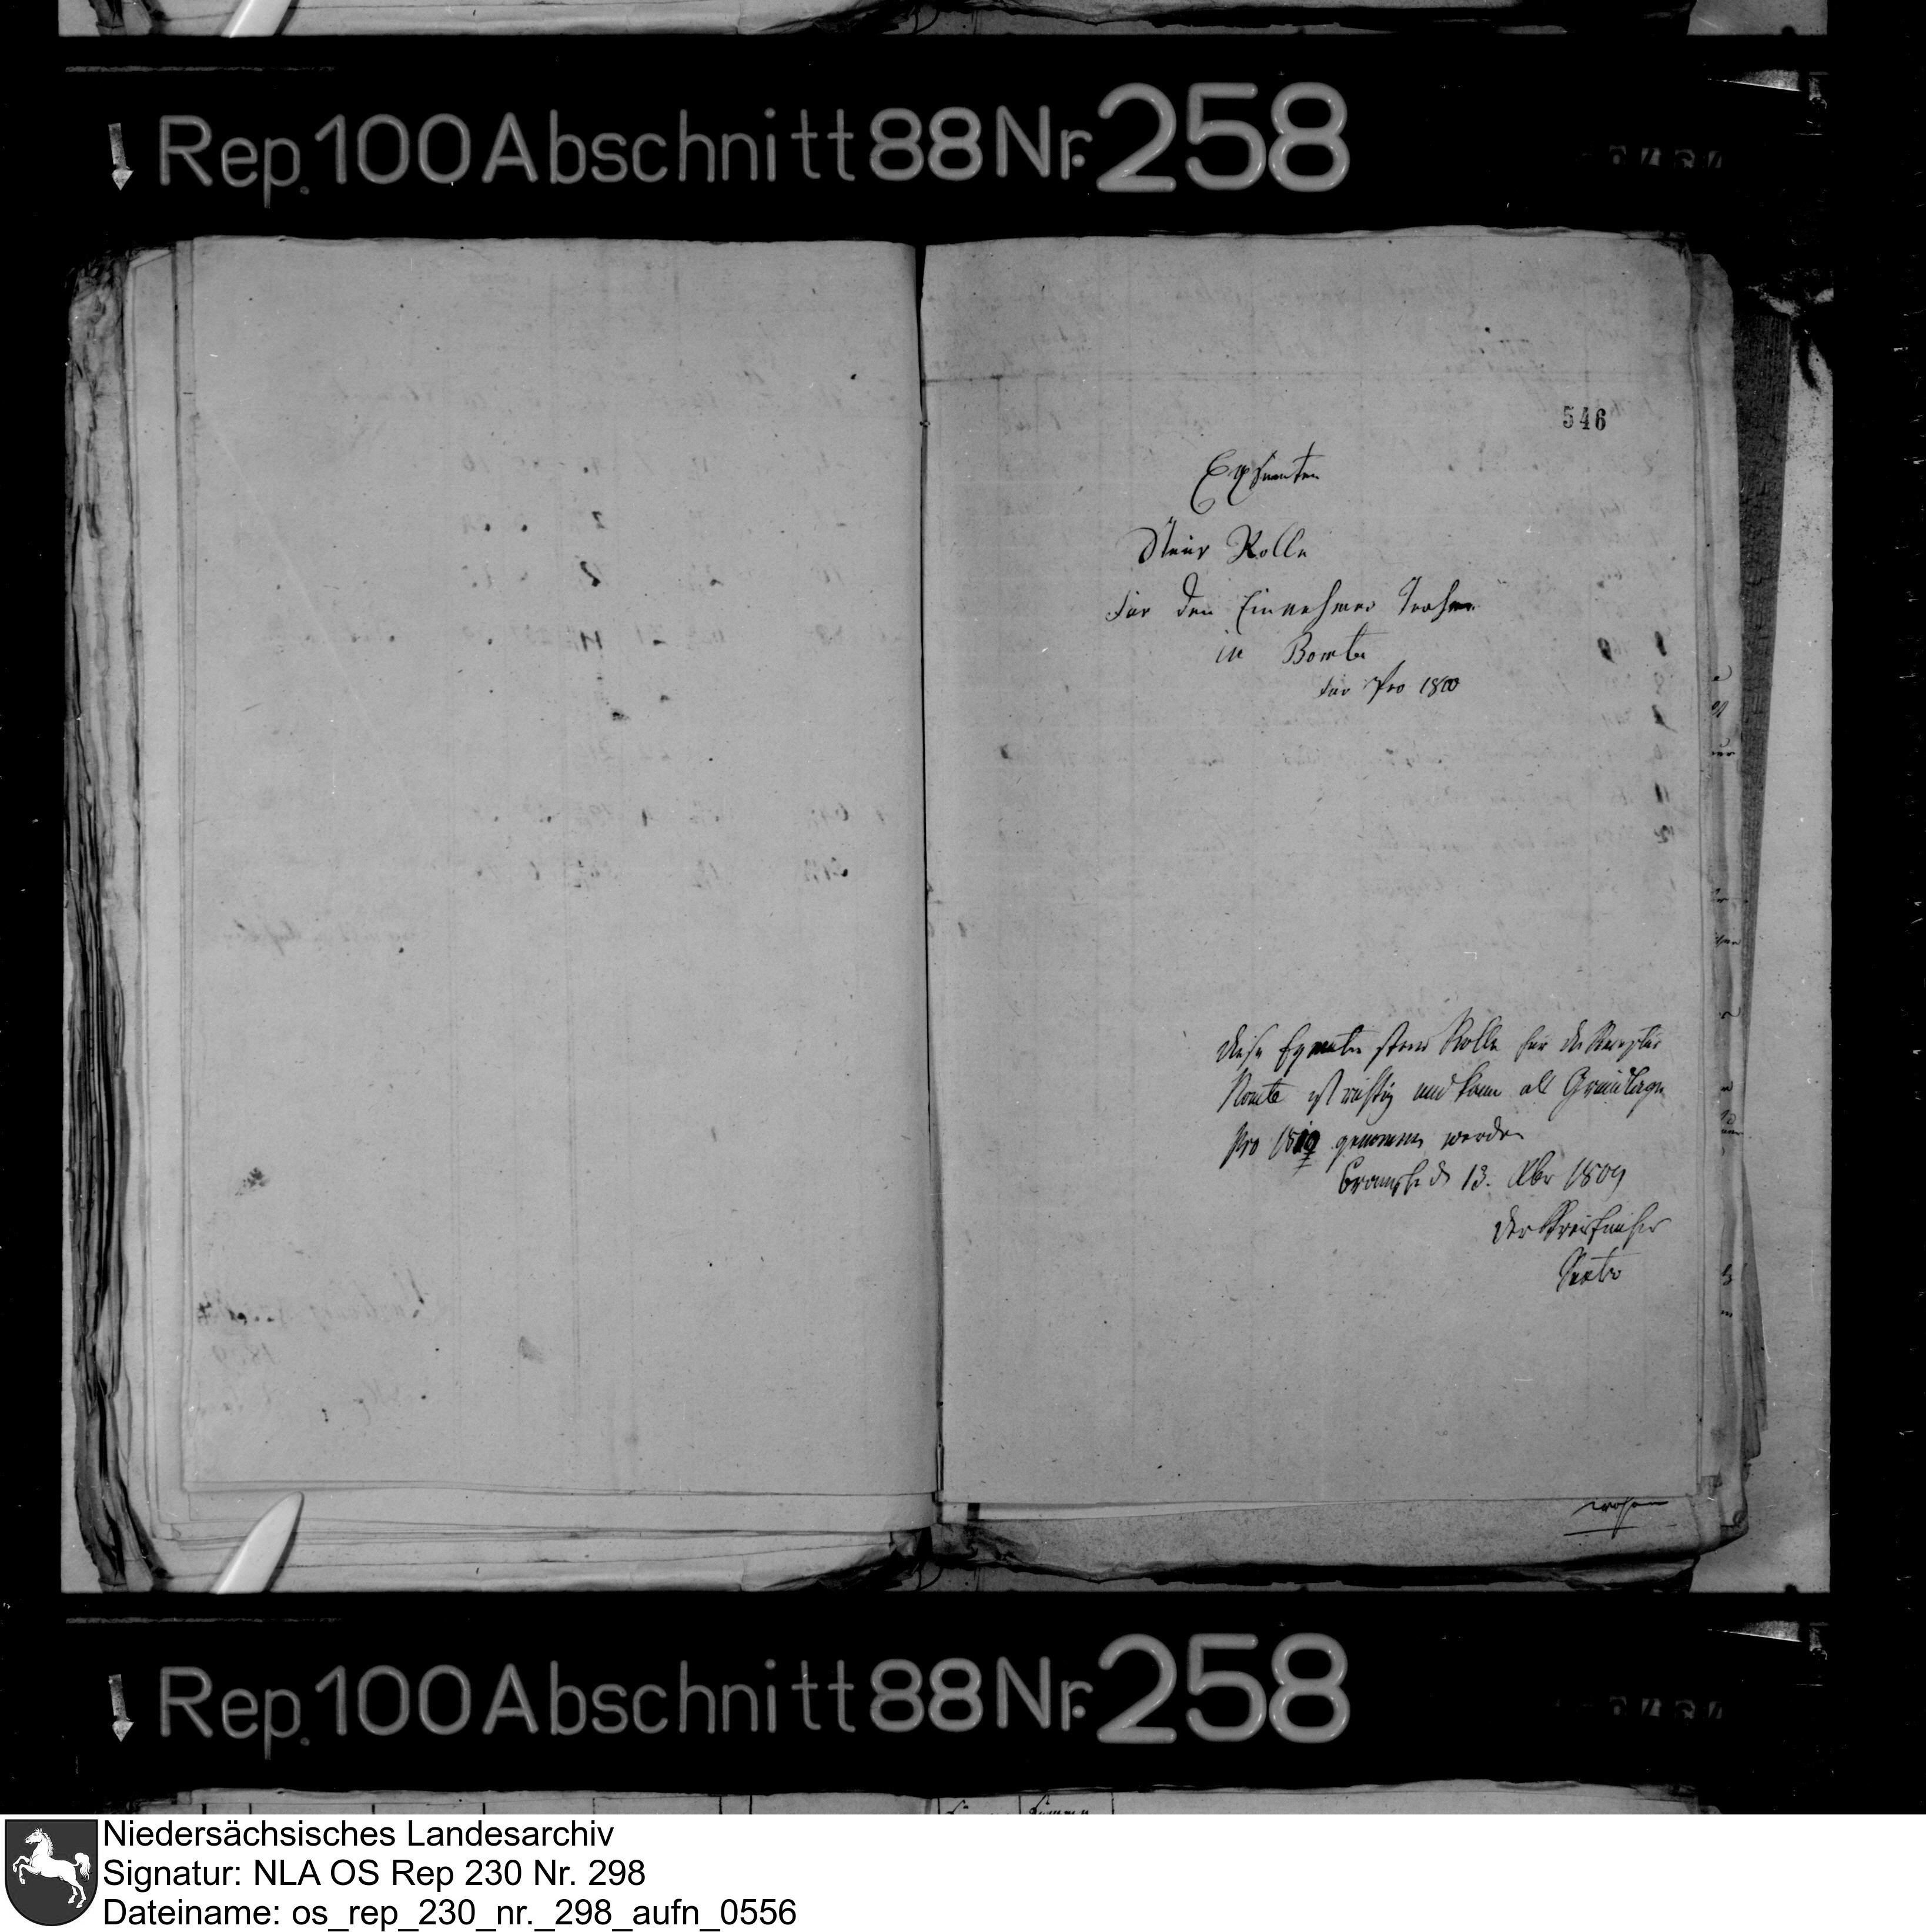 Rep. 100 Abschnitt 88 Nr. 258
546
Exemten
Steur Rolle
für den Einnehmer
in Bomte
für Pro 1800
diese Exemten steur Rolle für die Receptur
Bomte ist richtig und kann als Grundlage
pro 1810 genommen werden
Bramsche d 13. Xbr 1809
der Kreiseinnehmer
Rep. 100 Abschnitt 88 Nr. 258
Niedersächsisches Landesarchiv
Signatur: NLA OS Rep 230 Nr. 298
Dateiname: os_rep_230_nr._298_aufn_0556